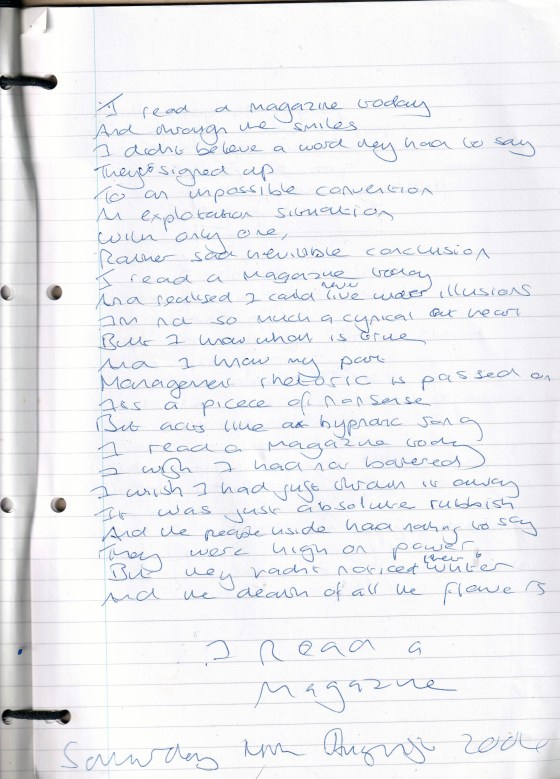 I read a magazine today
And through the smiles
I didn't believe a word they had to say
They signed up
To an impossible convention
An exploitation situation
With only one,
Rather sad inevitible conclusion
I read a magazine today
And realised I could never live under illusions
I'm not so much a cynical at heart
But I know what is true
And I know my part
Management rhetoric is passed on
Its a picece of nonsense
But acts like a hypnotic song
I read a magazine today
I wish I had not bothered
I wish I had just thrown it away
It was just absolute rubbish
And the people inside had nothing to say
They were high on power
But they hadn't noticed their winter
And the death of all the flowers
I Read a
Magazine
Saturday August